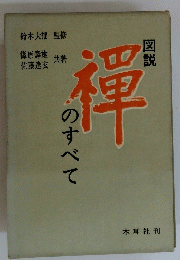 図説
禅のすべて
鈴木大拙 監修
篠原壽雄
佐藤達玄 共著
木耳社刊